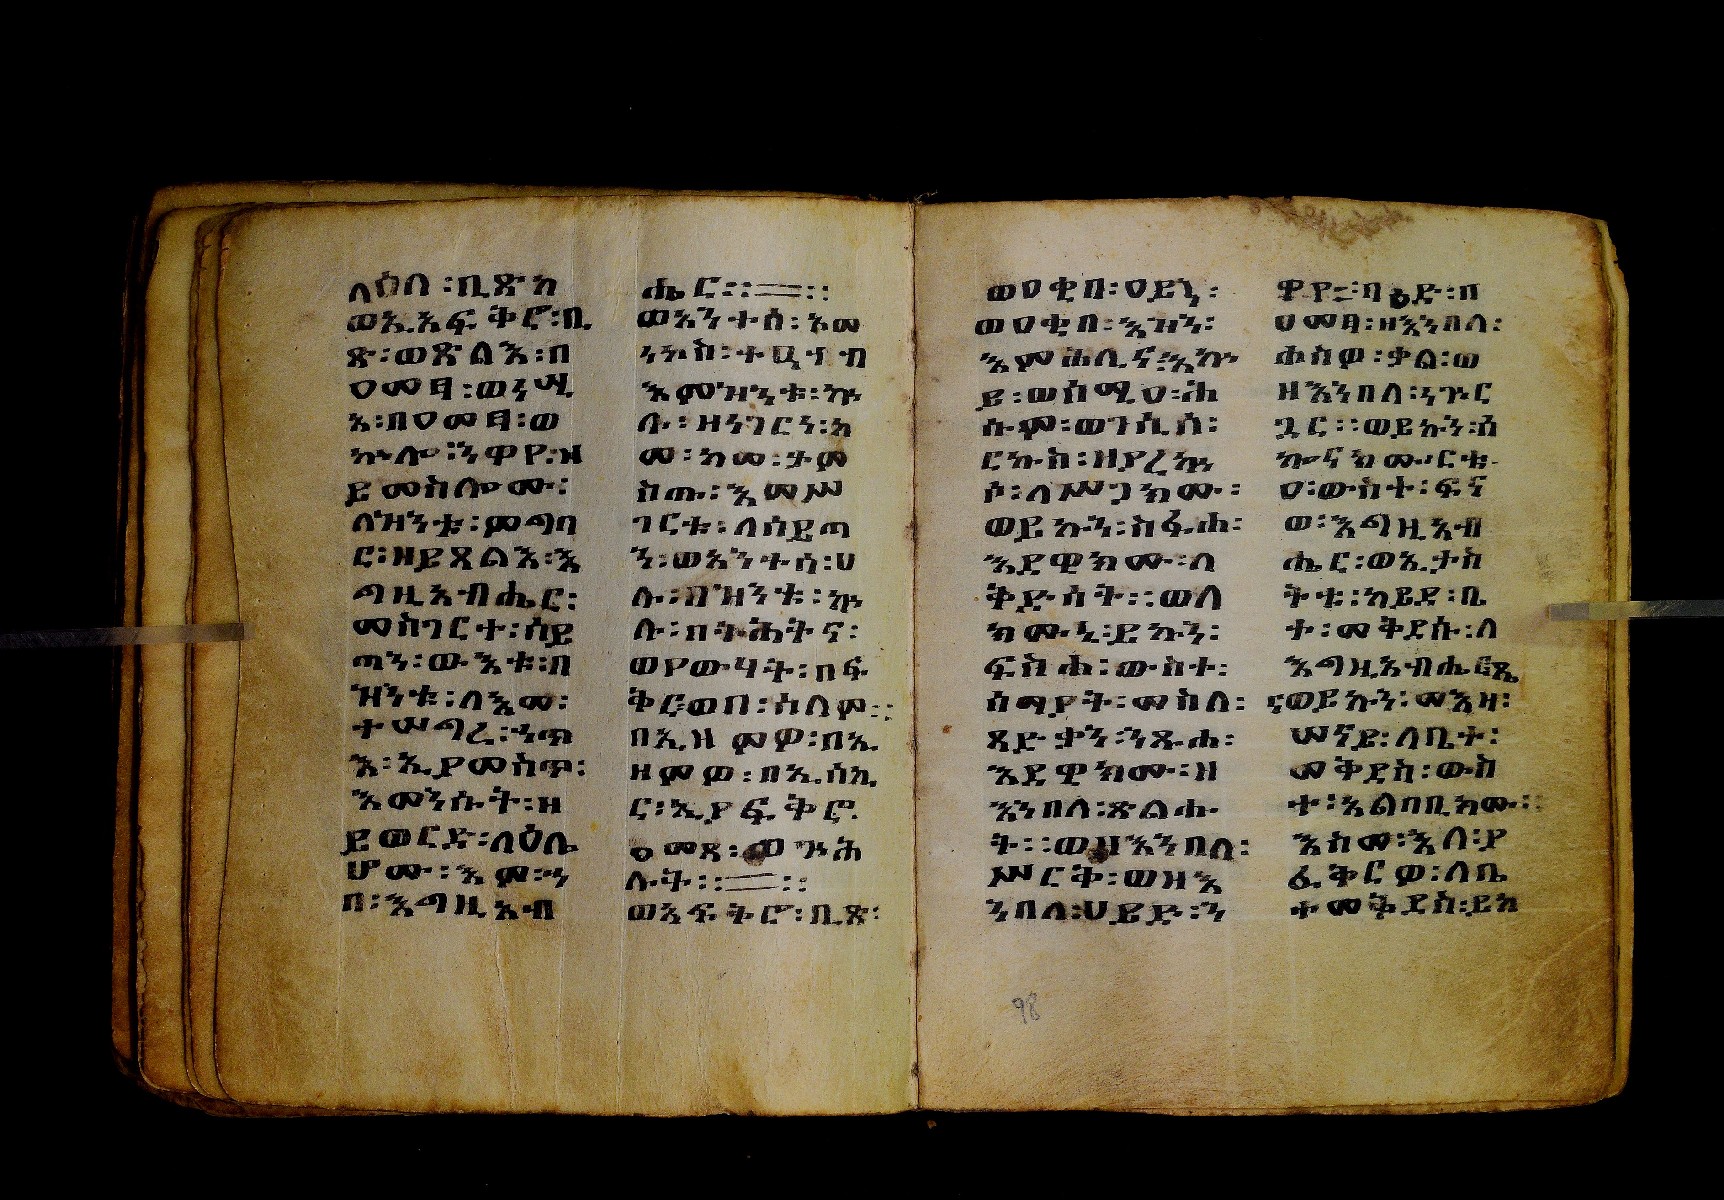 ላዕለ ፡ ቢጽከ
ወኢአፍቅሮ ፡ ቢ
ጽ ፡ ወጽልእ ፡ በ
ዐመፃ ፡ ወነሢ
አ ፡ በዐመፃ ፡ ወ
ኵሎ ፡ ንዋየ ፡ ዝ
ይመስሎሙ ፡
ለዝንቱ ፡ ምግባ
ር ፡ ዘይጸልእ ፡ እ
ግዚአብሔር ፡
መስገርተ ፡ ሰይ
ጣን ፡ ውእቱ ፡ በ
ዝንቱ ፡ ለእመ ፡
ተሠግረ ፡ ንጥ
እ ፡ ኢያመስጥ ፡
እመንሱት ፡ ዘ
ይወርድ ፡ ላዕሌ
ሆሙ ፡ እም ፡ ኀ
በ ፡ እግዚአብ
ሔር ። ።
ወአንተሰ ፡ አመ
ነከስ ፡ ተዐቀብ
እምዝንቱ ፡ ኵ
ሉ ፡ ዘነገርን ፡ ከ
መ ፡ ከመ ፡ ታም
ስጡ ፡ እመሥ
ገርቱ ፡ ለሰይጣ
ን ፡ ወአንተሰ ፡ ሀ
ሉ ፡ በዝንቱ ፡ ኵ
ሉ ፡ በትሕትና ፡
ወየውሃት ፡ በፍ
ቅር ፡ ወበ ፡ ሰላም ።
በኢዘምዎ ፡ በኢ
ዘምው ፡ በኢሰኪ
ር ፡ ኢያፍቅሮ
ዕመጻ ፡ ወኀጕሕ
ሉት ። ።
ወአፍትሮ ፡ ቢጽ ፡
ወዐቂበ ፡ ዐይን ፡
ወዐቂበ ፡ እዝን ፡
እምሐሊና ፡ እኩ
ይ ፡ ወሰሚዐ ፡ ሕ
ሱም ፡ ወገሲሰ ፡
ርኩስ ፡ ዘያረኵ
ሶ ፡ ለሥጋክሙ ፡
ወይኩን ፡ ስፉሐ ፡
እደዊክሙ ፡ ለ
ቅድሰት ። ወለ
ክሙኒ ፡ ይኩን ፡
ፍስሐ ፡ ውስተ ፡
ሰማያት ፡ መስለ ፡
ጻድቃን ፡ ንጹሐ ፡
እደዊክሙ ፡ ዘ
እንበለ ፡ ጽልሑ
ት ። ወዘእንበለ ፡
ሥርቅ ፡ ወዘእ
ንበለ ፡ ሀይድ ፡ ን
ዋየ ፡ ባዕድ ፡ በ
ዐመፃ ፡ ዘእንበለ ፡
ሐስዎ ፡ ቃል ፡ ወ
ዘእንበለ ፡ ነጕር
ጓር ። ወይኩን ፡ ሰ
ኵናክሙ ፡ ርቱ
ዐ ፡ ውስተ ፡ ፍና
ወ ፡ እግዚአብ
ሔር ፡ ወኢታስ
ትቱ ፡ ከይደ ፡ ቤ
ተ ፡ መቅደሱ ፡ ለ
እግዚአብሔር ፡
ወይኩን ፡ መእዛ ፡
ሠናይ ፡ ለቤተ ፡
መቅደስ ፡ ውስ
ተ ፡ አልባቢክሙ ።
እስመ ፡ እለ ፡ ያ
ፈቅርዎ ፡ ለቤ
ተመቅደስ ፡ ይከ
98